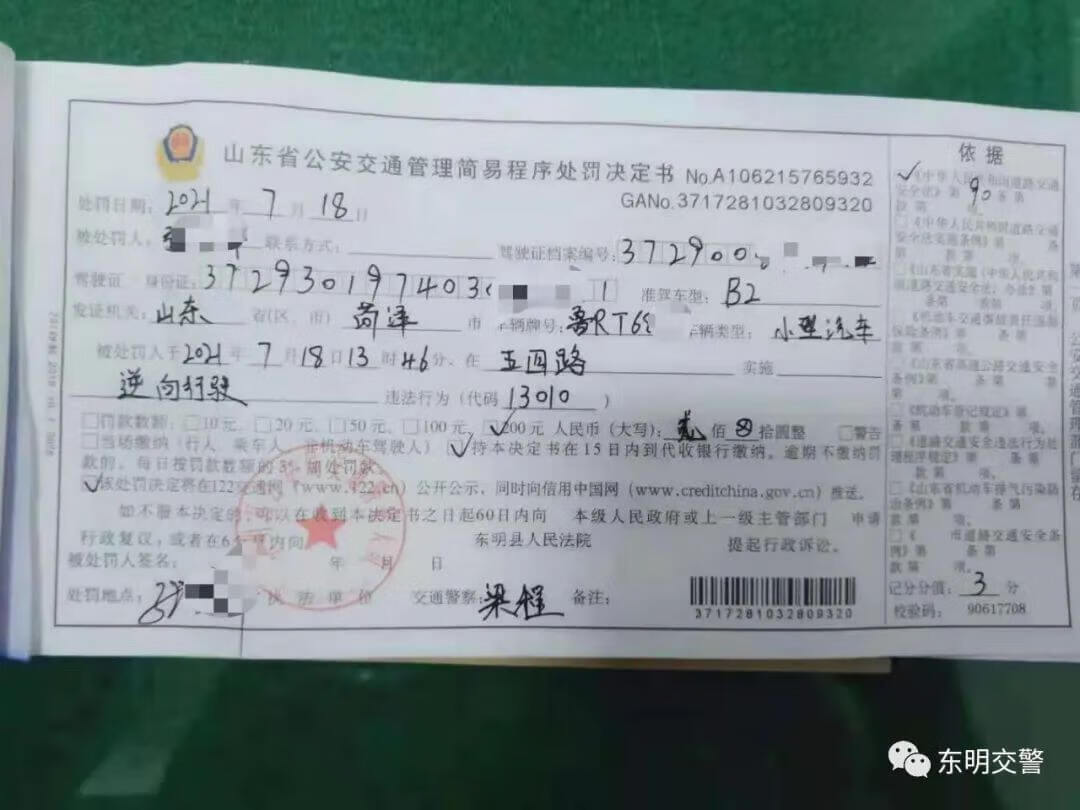 山东省公安交通管理简易程序处罚决定书 No.A106215765932
GANo.3717281032809320
处罚日期: 2021 年 7 月 18 日
被处罚人: 联系方式: 驾驶证档案编号: 372900
驾驶证 身份证: 372930197403 1 准驾车型: B2
发证机关: 山东 省(区、市) 菏泽 市 车辆牌号: 鲁RT6 车辆类型: 小型汽车
被处罚人于 2021 年 7 月 18 日 13 时 46 分、在 五四路 实施
逆向行驶 违法行为(代码 13010 )
□罚款数额: □10元、□20元、□50元、□100元、☑200元 人民币(大写): 贰 佰 拾圆整 □警告
□当场缴纳(行人 乘车人 非机动车驾驶人) ☑持本决定书在15日内到代收银行缴纳。逾期不缴纳罚
款的、每日按罚款数额的3%加处罚款。
☑该处罚决定将在122交通网(www.122.cn)公开公示,同时向信用中国网(www.creditchina.gov.cn)推送。
如不服本决定的,可以在收到本决定书之日起60日内向 本级人民政府或上一级主管部门 申请
行政复议,或者在6个月内向 东明县人民法院 提起行政诉讼。
被处罚人签名: 年 月 日
处罚地点: 执法单位 交通警察: 梁程 备注:
3717281032809320
依据
☑《中华人民共和国道路交通
安全法》第 90 条第
款第 项。
□《中华人民共和国道路交通
安全法实施条例》第 条
第 款第 项。
□《山东省实施〈中华人民共和
国道路交通安全法〉办法》第
条第 款第 项。
□《机动车交通事故责任强制
保险条例》第 条第 款。
□《山东省高速公路交通安全
条例》第 条第 款。
□《机动车登记规定》第
条第 款第 项。
□《道路交通安全违法行为处
理程序规定》第 条第
款第 项。
□《山东省机动车排气污染防
治条例》第 条第
款第 项。
□《 市道路交通安全条
例》第 条第
款第 项。
记分分值: 3 分
校验码: 90617708
东明交警